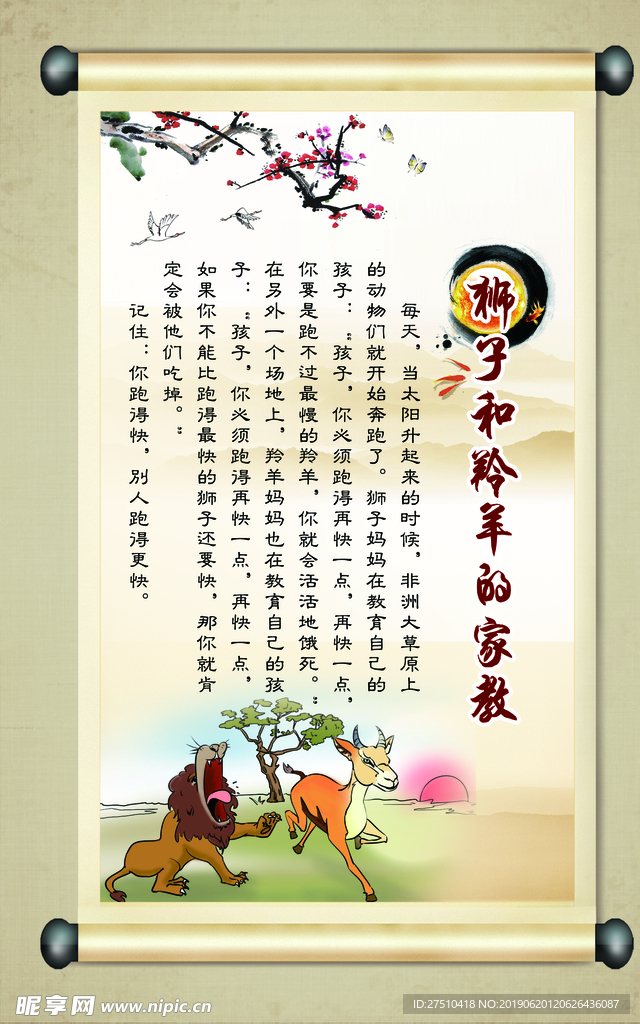 狮子和羚羊的家教
每天，当太阳升起来的时候，非洲大草原上
的动物们就开始奔跑了。狮子妈妈在教育自己的
孩子：“孩子，你必须跑得再快一点，再快一点，
你要是跑不过最慢的羚羊，你就会活活地饿死。”
在另外一个场地上，羚羊妈妈也在教育自己的孩
子：“孩子，你必须跑得再快一点，再快一点，
如果你不能比跑得最快的狮子还要快，那你就肯
定会被他们吃掉。”
记住：你跑得快，别人跑得更快。
昵享网 www.nipic.cn
ID:27510418 NO:20190620120626436087